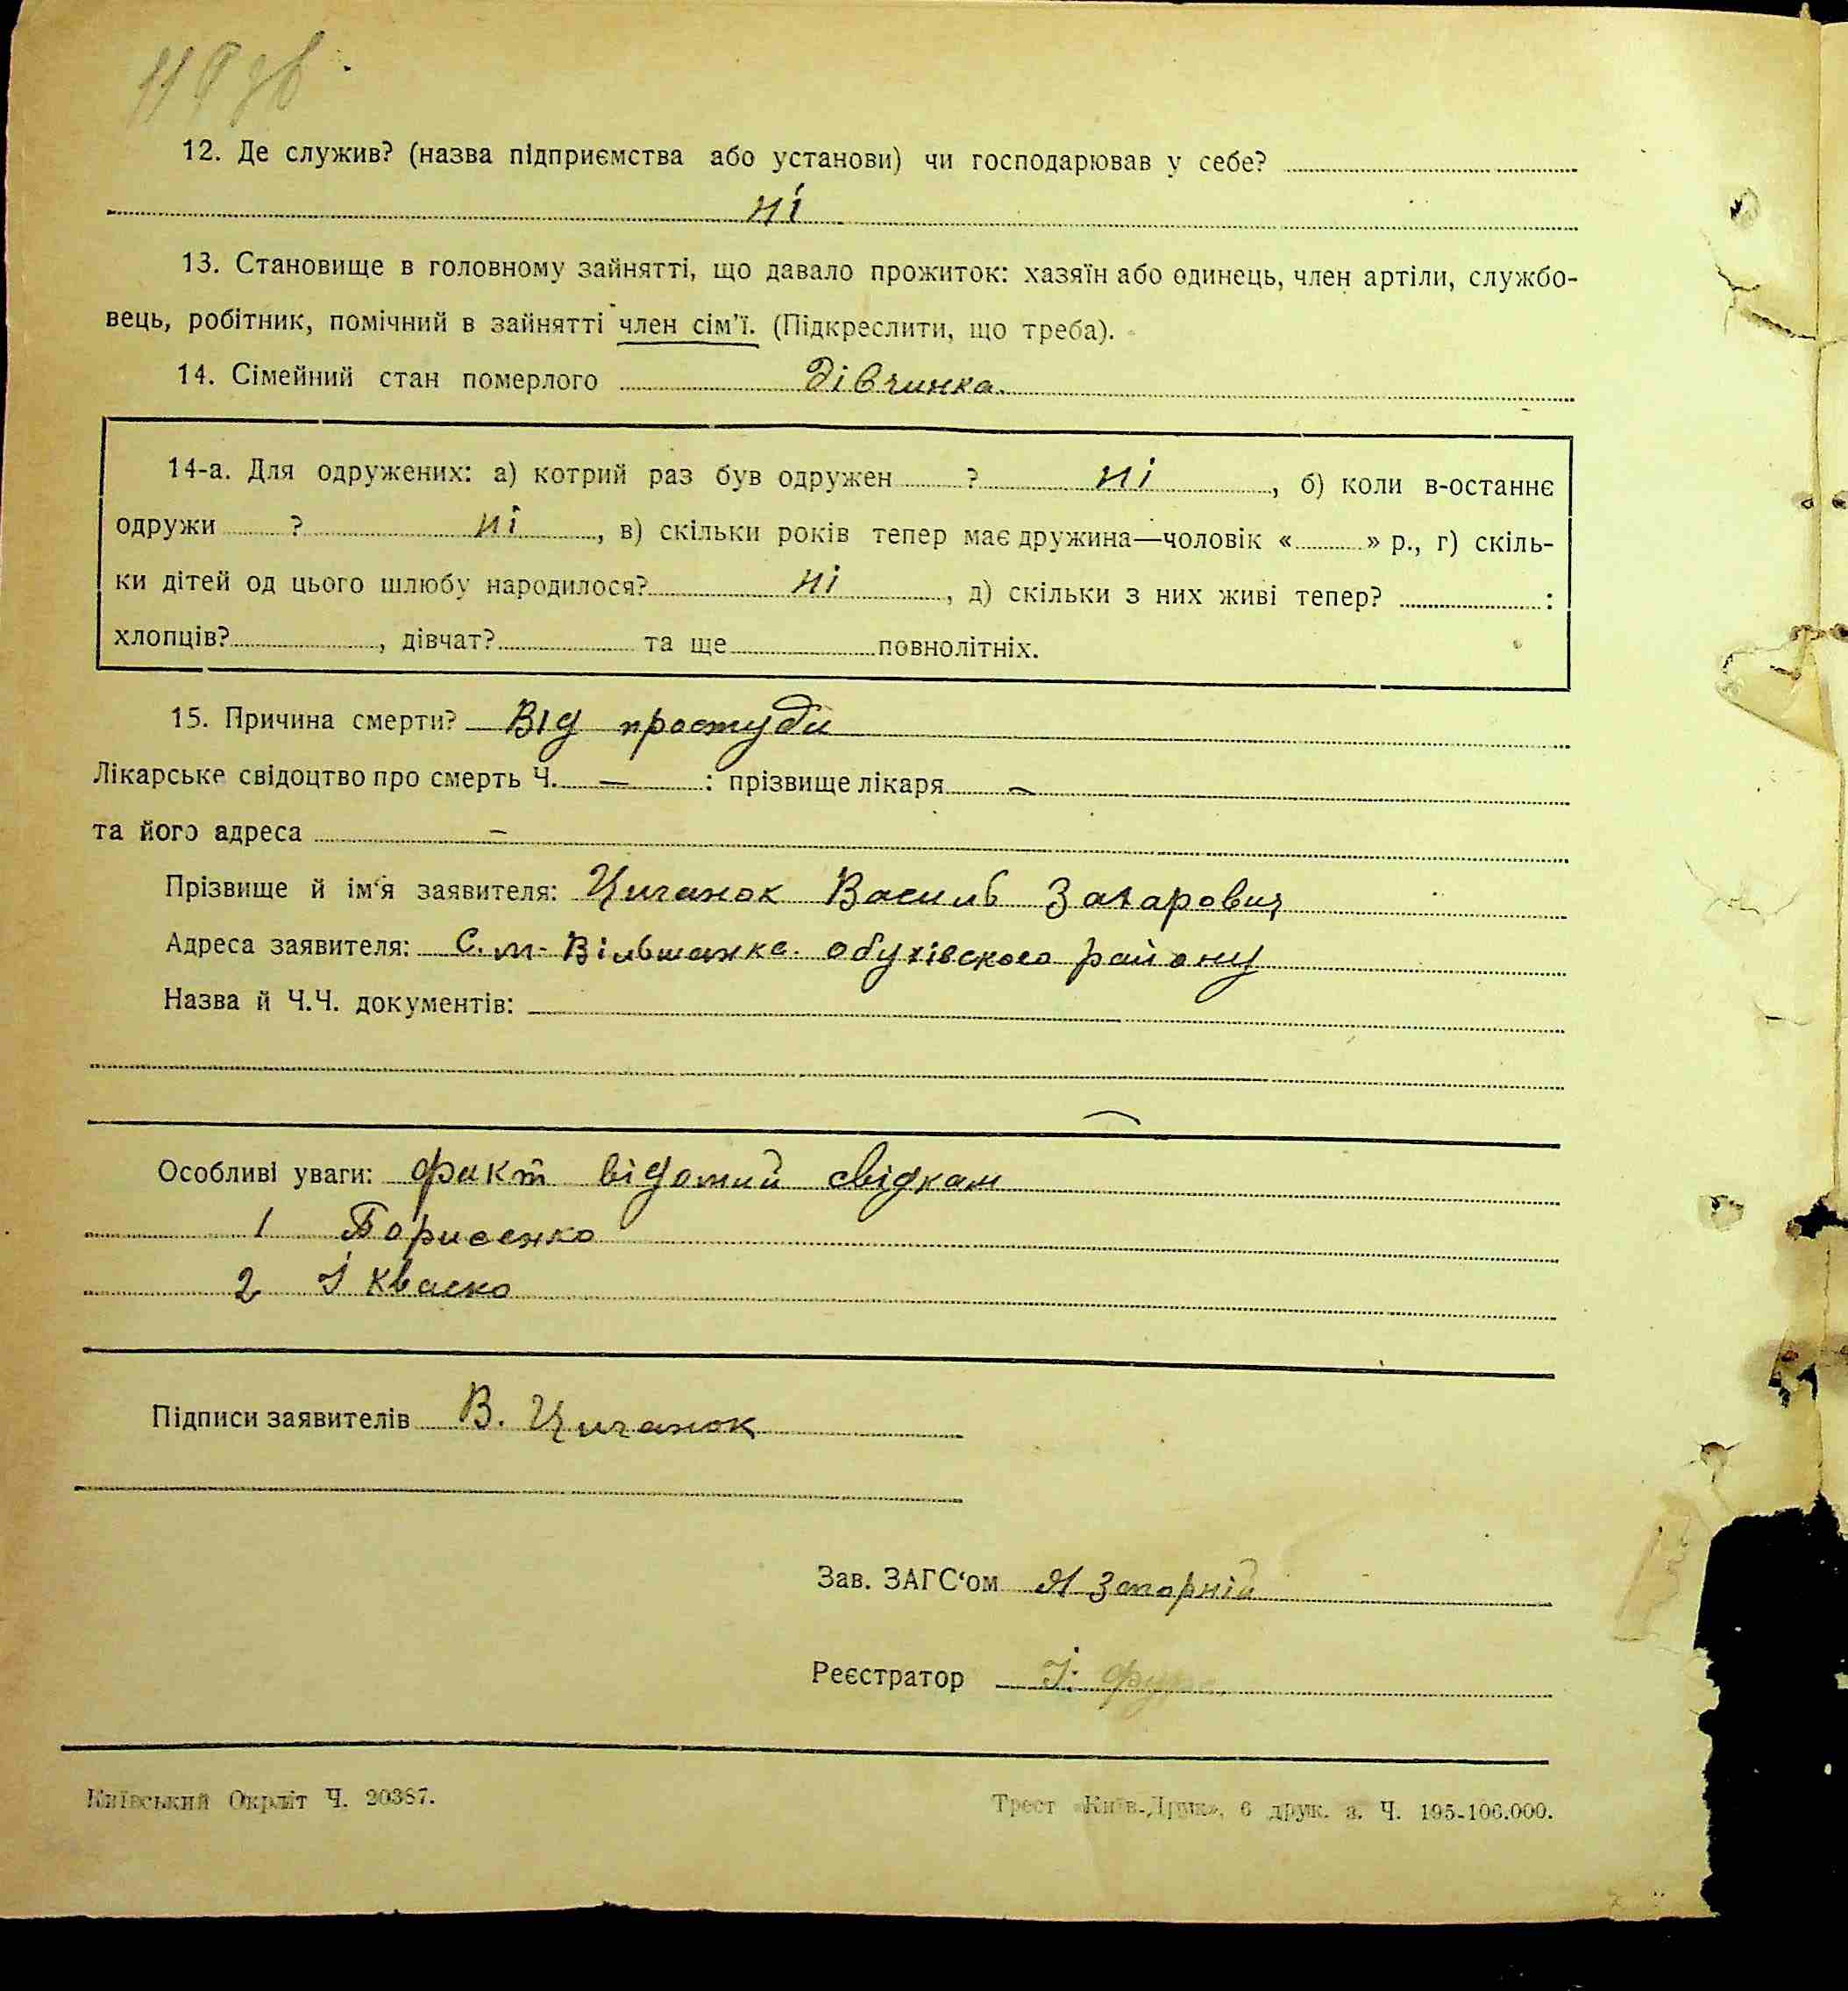 119 зв.
12. Де служив? (назва підприємства або установи) чи господарював у себе?
ні
13. Становище в головному зайнятті, що давало прожиток: хазяїн або одинець, член артіли, службо-
вець, робітник, помічний в зайнятті член сім'ї. (Підкреслити, що треба).
14. Сімейний стан померлого дівчинка.
14-а. Для одружених: а) котрий раз був одружен ? ні, б) коли в-останнє
одружи ? ні, в) скільки років тепер має дружина—чоловік « » р., г) скіль-
ки дітей од цього шлюбу народилося? ні, д) скільки з них живі тепер? :
хлопців? , дівчат? та ще повнолітніх.
15. Причина смерти? Від простуди
Лікарське свідоцтво про смерть Ч. — : прізвище лікаря —
та його адреса —
Прізвище й ім'я заявителя: Циганок Василь Захарович
Адреса заявителя: С. м-Вільшанка. обухівского району
Назва й Ч.Ч. документів:
Особливі уваги: факт відомий свідкам
1 Борисенко
2 І Кваско
Підписи заявителів В. Циганок
Зав. ЗАГС'ом
Реєстратор І.
Київський Окрліт Ч. 20387.
Трест «Київ-Друк», 6 друк. з. Ч. 195-100.000.